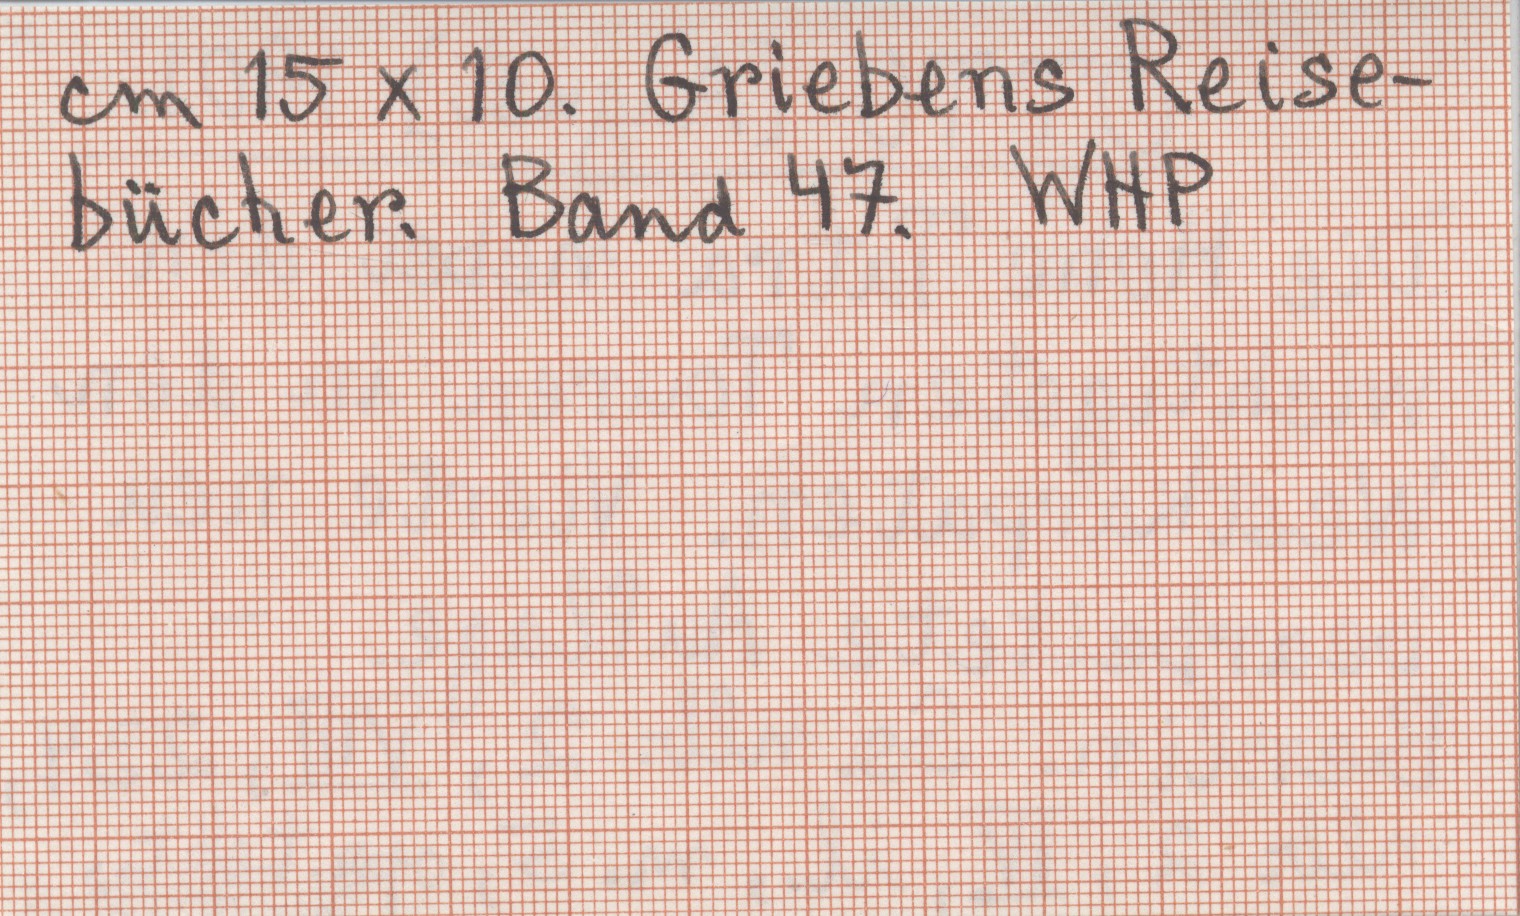 cm 15 x 10. Griebens Reise-
bücher. Band 47. WHP